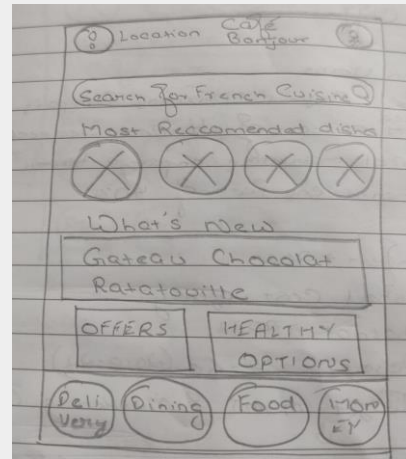 Location Café
Bonjour
Search for French Cuisine
Most Reccomended dishs
What's New
Gateau Chocolat
Ratatouille
OFFERS HEALTHY
OPTIONS
Deli Dining Food Mon
very EY